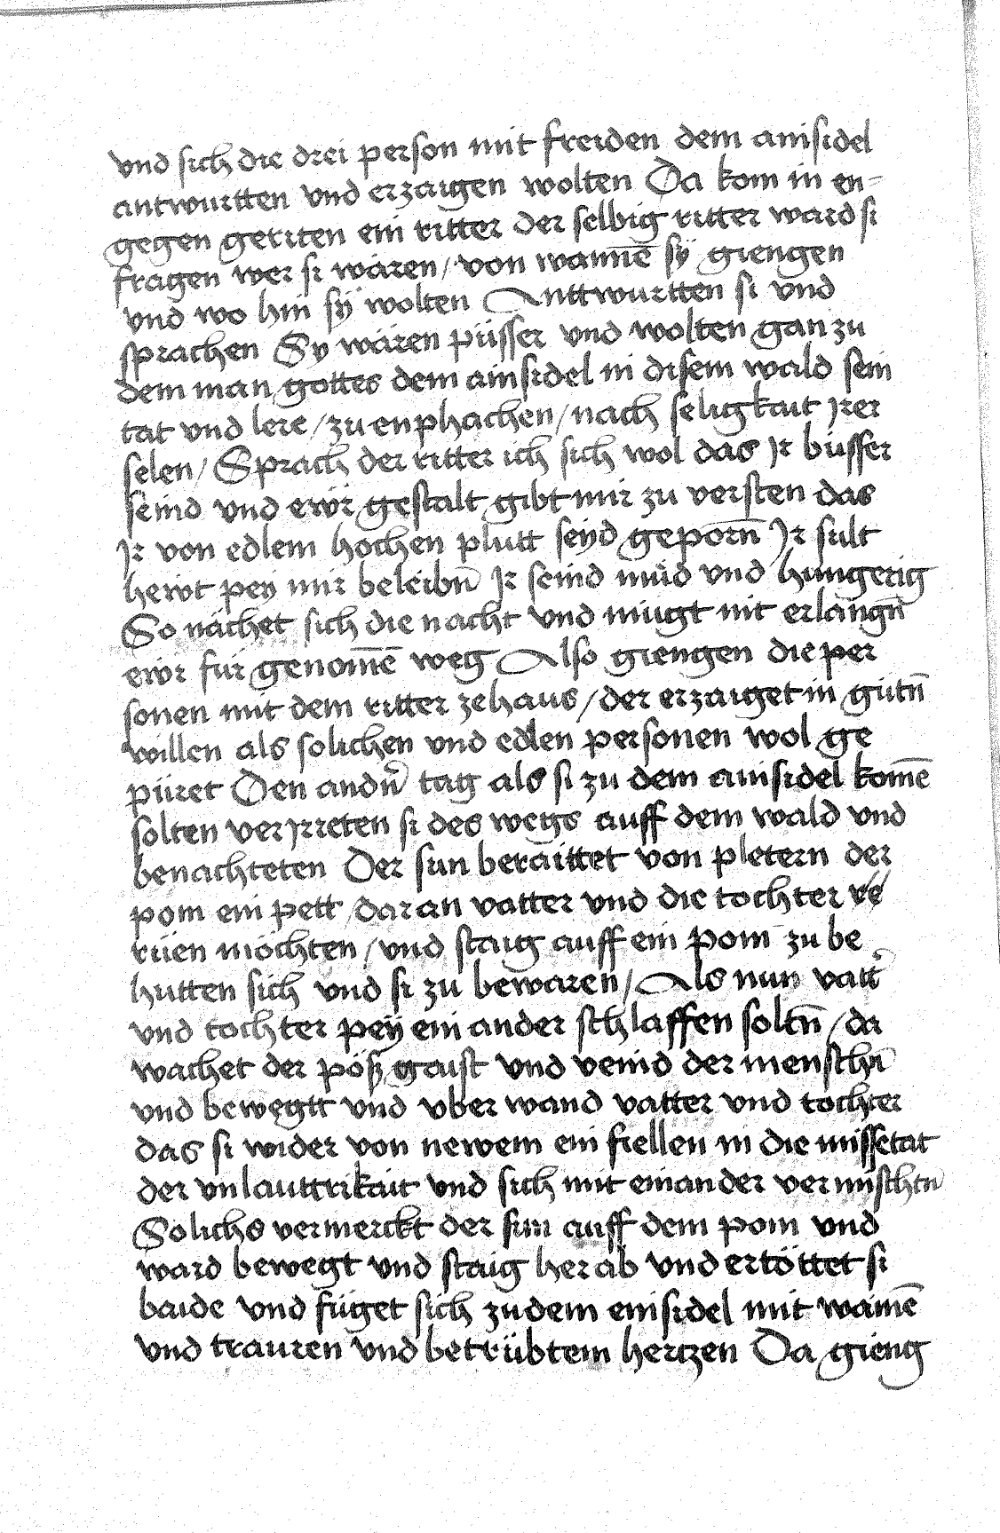 vnd sich die drei person mit freiden dem ainsidel
antwurtten vnd erzaigen wolten Da kom in en-
gegen geriten ein ritter der selbig ritter ward si
fragen wer si wären / von wannē sÿ giengen
vnd wo hin sÿ wolten Anttwurtten si vnd
sprachen Sy wären püsser vnd wolten gan zu
dem man gottes dem ainsidel in disem wald sein
tat vnd lere / zu enphachen / nach seligkait irer
selen / Sprach der ritter ich sich wol das Ir büsser
seind vnd ewr gestalt gibt mir zu versten das
Ir von edlem hochen plutt seÿd geporn̄ Ir sült
hewt peÿ mir beleibn̄ Ir seind müd vnd hungerig
So nächet sich die nacht vnd mügt nit erlangn̄
ewr für genomē weg Also giengen die per
sonen mit dem ritter ze haus / der erzaiget in gütn̄
willen als solichen vnd edlen personen wol ge
püret Den andn̄ tag als si zu dem ainsidel komē
solten ver irreten si des wegs auff dem wald vnd
benachteten Der sun beraittet von pletern der
pom ein pett / daran vatter vnd die tochter re
rüen möchten / vnd staig auff ein pom zu be
hutten sich vnd si zu bewaren / Als nun vatt̄
vnd tochter peÿ ein ander schlaffen soltn̄ / da
wachet der pöß gaist vnd veind der menschn̄
vnd bewegtt vnd vber wand vatter vnd tochter
das si wider von newem ein fiellen in die missetat
der vnlauttrikait vnd sich mit einander vermischtn̄
Solichs vermerckt der sun auff dem pom vnd
ward bewegt vnd staig her ab vnd ertöttet si
baide vnd füget sich zu dem einsidel mit wainē
vnd trauren vnd betrübtem hertzen Da gieng